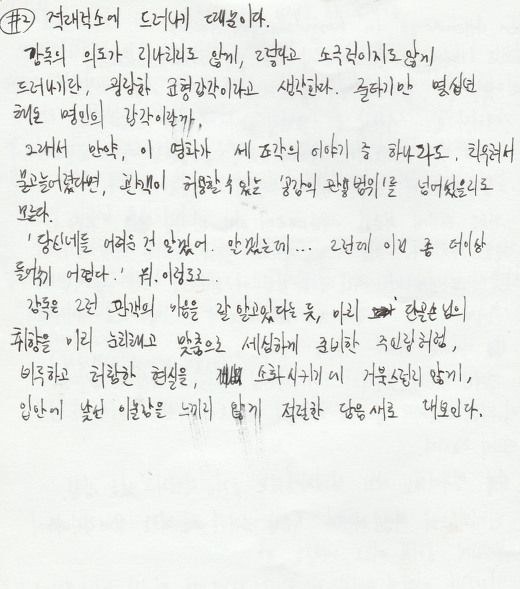 #2 적재적소에 드러나기 때문이다.
감독의 의도가 지나치지도 않게, 그렇다고 소극적이지도 않게
드러나기란, 굉장한 균형감각이라고 생각한다. 줄타기만 몇십년
해온 명인의 감각이랄까.
그래서 만약, 이 영화가 세 조각의 이야기 중 하나라도, 치우쳐서
물고늘어졌다면, 관객이 허용할 수 있는 '공감의 관용범위'를 넘어섰을지도
모른다.
'당신네들 어려운 건 알겠어. 알겠는데... 그런데 이건 좀 더이상
들어주기 어렵다.' 뭐. 이렇고.
감독은 그런 관객의 마음을 잘 알고있다는 듯, 마치 단골손님의
취향을 미리 눈치채고 맞춤으로 세심하게 준비한 주인장처럼,
비루하고 처참한 현실을, 소화시키기에 거북스럽지 않게,
입안에 낯선 이물감을 느끼지 않게 적절한 담음새로 내보인다.